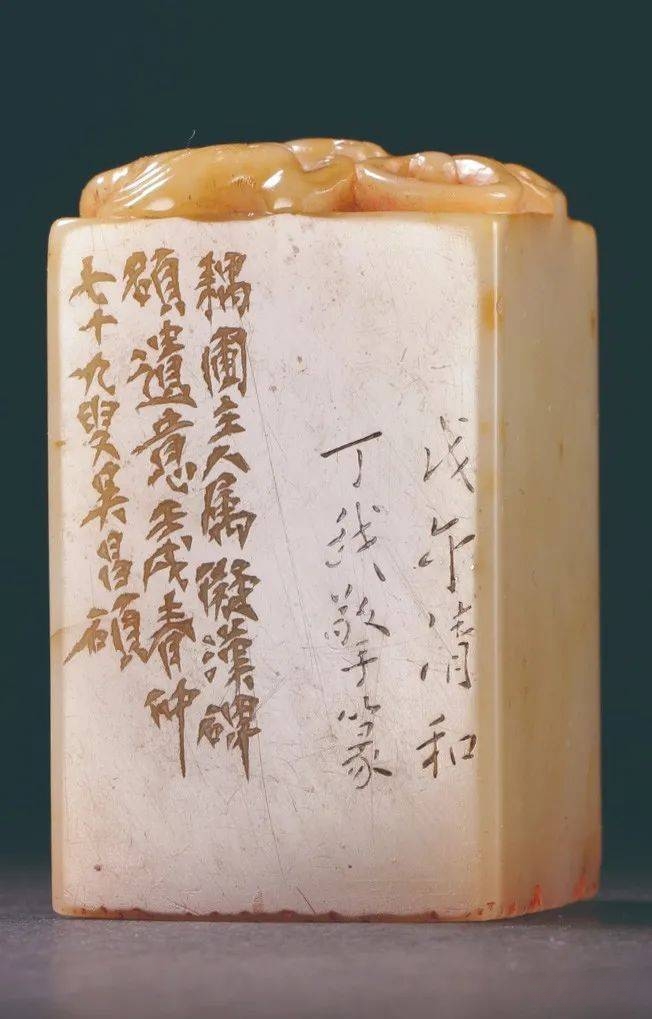 戊午清和
丁敬手篆
耦圃主人属擬漢碑
額遺意壬戌春仲
七十九叟吳昌碩